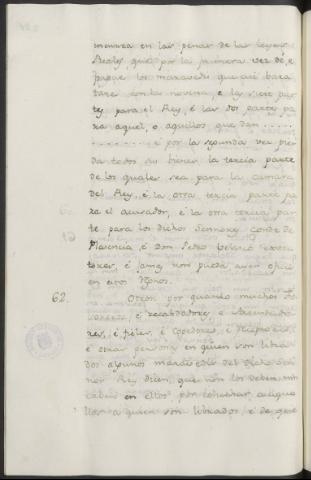 incurra en las penas de las Leyes
Reales, que por la primera vez de, e
pague los maravedis que asi bara
tare con la novena, e las siete par
tes para el Rey, é las dos partes pa
ra aquel, o aquellos que dan ......
........ é por la segunda vez pier
da todos sus bienes la tercia parte
de los quales sea para la camara
del Rey, é la otra tercia parte pa
ra el acusador, é la otra tercia par
te para los dichos Señores Conde de
Plasencia, é Don Pedro
é jamas non pueda aver oficio
en estos Reynos.
62. Otrosi por quanto muchos
é recabdadores, é Arrendado
res, é fieles, é Cogedores, é
é otras personas en quien son libra
dos algunos maravedis del dicho Se
ñor Rey dicen, que non los deben, nin
caben en ellos por cohechar aquellos
a quien son librados, é de